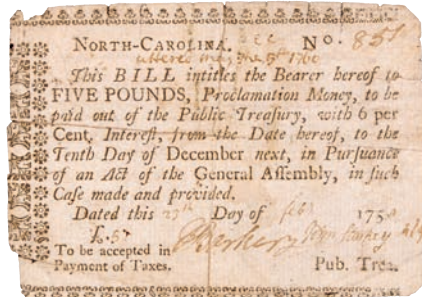 NORTH-CAROLINA. No. 851
This BILL intitles the Bearer hereof to
FIVE POUNDS, Proclamation Money, to be
paid out of the Public Treasury, with 6 per
Cent. Intereſt, from the Date hereof, to the
Tenth Day of December next, in Purſuance
of an Act of the General Aſſembly, in ſuch
Caſe made and provided.
Dated this Day of 175
£.5
To be accepted in
Payment of Taxes. Pub. Trea.